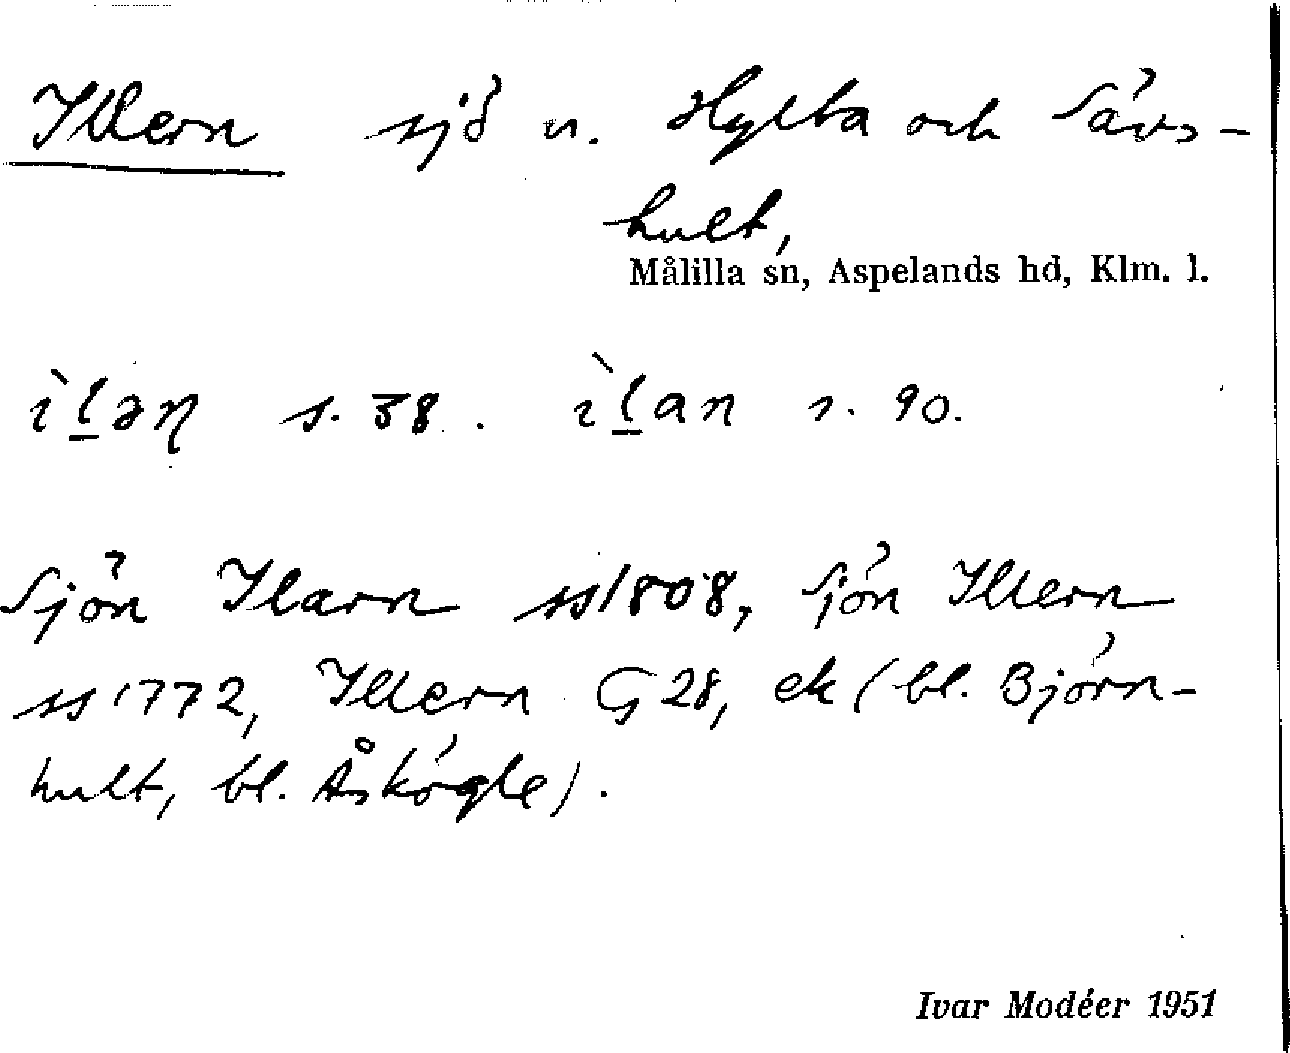 Illern sjö n. Hylta och Sävs-
hult,
Målilla sn, Aspelands hd, Klm. l.
ìl̲əɳ s. 38. ìl̲an s. 90.
Sjön Ilarn ss1808, Sjön Illern
ss1772, Illern G28, ek (bl. Björn-
hult, bl. Åskögle).
Ivar Modéer 1951